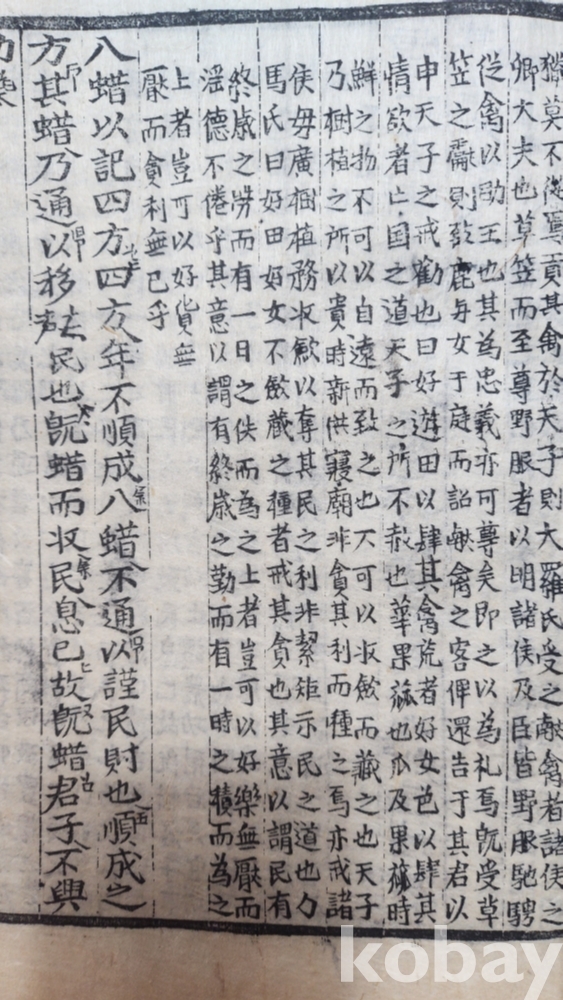 獵莫不從冥貢其禽於天子則大羅氏受之献禽者諸侯之
卿大夫也草笠而至尊野服者以明諸侯及臣皆野服馳騁
從禽以勛王也其為忠義亦可尊矣即之以為礼焉旣受草
笠之献則致鹿与女于庭而詔献禽之客俾還告于其君以
申天子之戒勸也曰好遊田以肆其禽荒者好女色以肆其
情欲者亡国之道天子之所不赦也華果蓏也瓜及果蓏時
鮮之物不可以自遠而致之也不可以收斂而藏之也天子
乃樹植之所以貴時新供寢廟非貪其利而種之焉亦戒諸
侯毋廣樹植務收斂以奪其民之利非絜矩示民之道也
馬氏曰好田好女不斂藏之種者戒其貪也其意以謂民有
終歲之勞而有一日之佚而為之上者豈可以好樂無厭而
淫德不倦乎其意以謂有終歲之勤而有一時之積而為之
上者豈可以好貨無
厭而貪利無已乎
八蜡以記四方四方年不順成八蜡不通以謹民財也順成之
方其蜡乃通以移民也旣蜡而收民息已故旣蜡君子不興
功
kobay